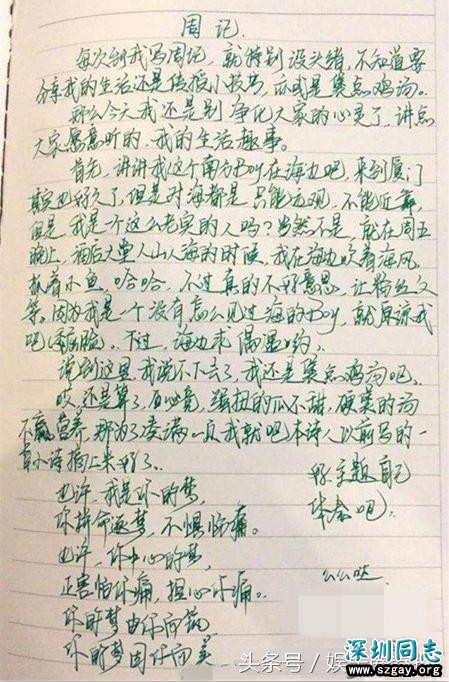 周记
每次到我写周记，就特别没头绪，不知道要
分享我的生活还是传授小技巧，亦或是煲点鸡汤。
那么今天我还是别净化大家的心灵了，讲点
大家愿意听的，我的生活趣事。
首先，讲讲我这个南方Boy在海边吧，来到厦门
其实也好久了，但是对海都是只能远观，不能近靠，
但是我是一个这么老实的人吗？当然不是，就在周五
晚上，酒店大堂人山人海的时候，我在海边吹着海风，
抓着小鱼，哈哈，不过真的不好意思，让粉丝久
等。因为我是一个没有怎么见过海的Boy，就原谅我
吧（ 脸。不过，海边求偶遇哟。
说到这里，我说不下去了，我还是煲点鸡汤吧，
哎，还是算了，毕竟，强扭的瓜不甜，硬煲的汤
不 营养，那为了凑满一页我就吧本诗人以前写的一
首小诗摘上来好了。
也许，我是你的梦，
你拼命逐梦，不惧伤痛。
也许，你中心的梦，
正害怕你痛，担心你痛。
你的梦由你向筑
你的梦因你向美
好主题自己
体会吧，
么么哒
头条号／娱
深圳同志
www.szgay.org